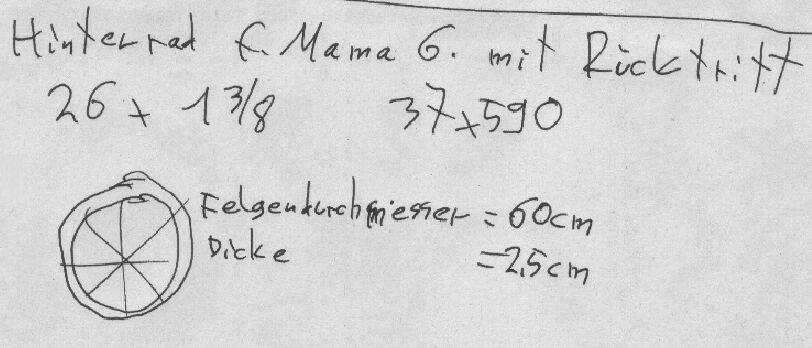 Hinterrad f. Mama G. mit Rücktritt
26 x 1 3/8 37x590
Felgendurchmesser = 60cm
Dicke = 2,5cm